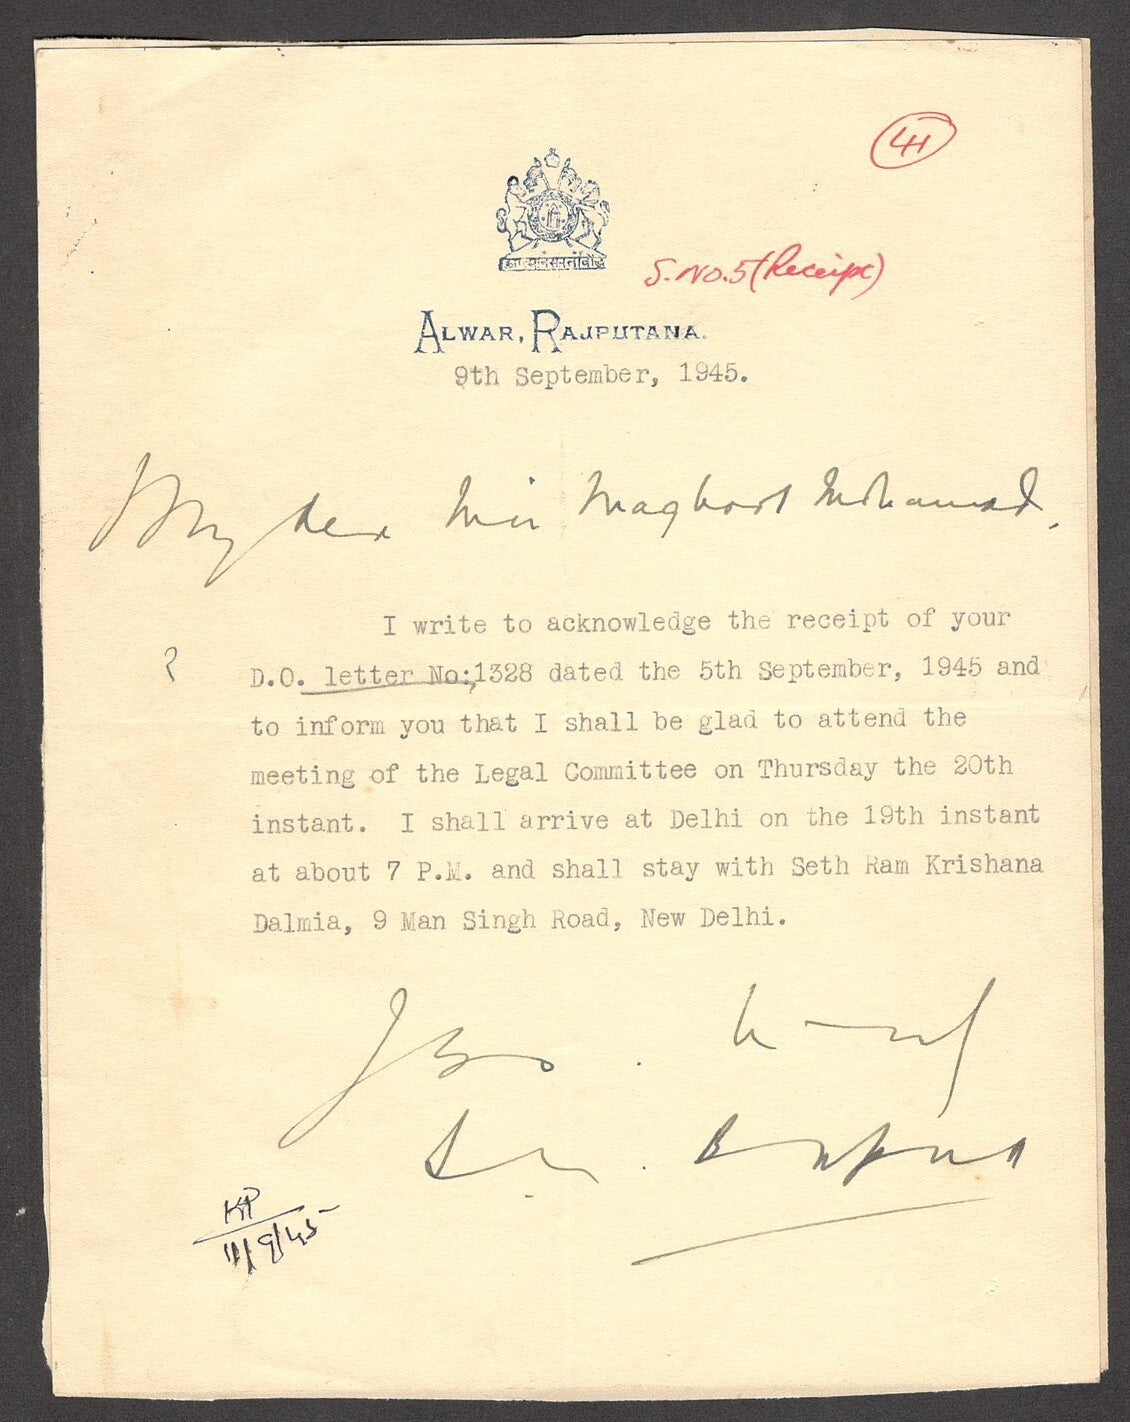 41
S. No. 5 (Receipt)
ALWAR, RAJPUTANA.
9th September, 1945.
My dear Mir Maqbool Mohamad,
I write to acknowledge the receipt of your
?
D.O. letter No:1328 dated the 5th September, 1945 and
to inform you that I shall be glad to attend the
meeting of the Legal Committee on Thursday the 20th
instant. I shall arrive at Delhi on the 19th instant
at about 7 P.M. and shall stay with Seth Ram Krishana
Dalmia, 9 Man Singh Road, New Delhi.
KP
11/9/45